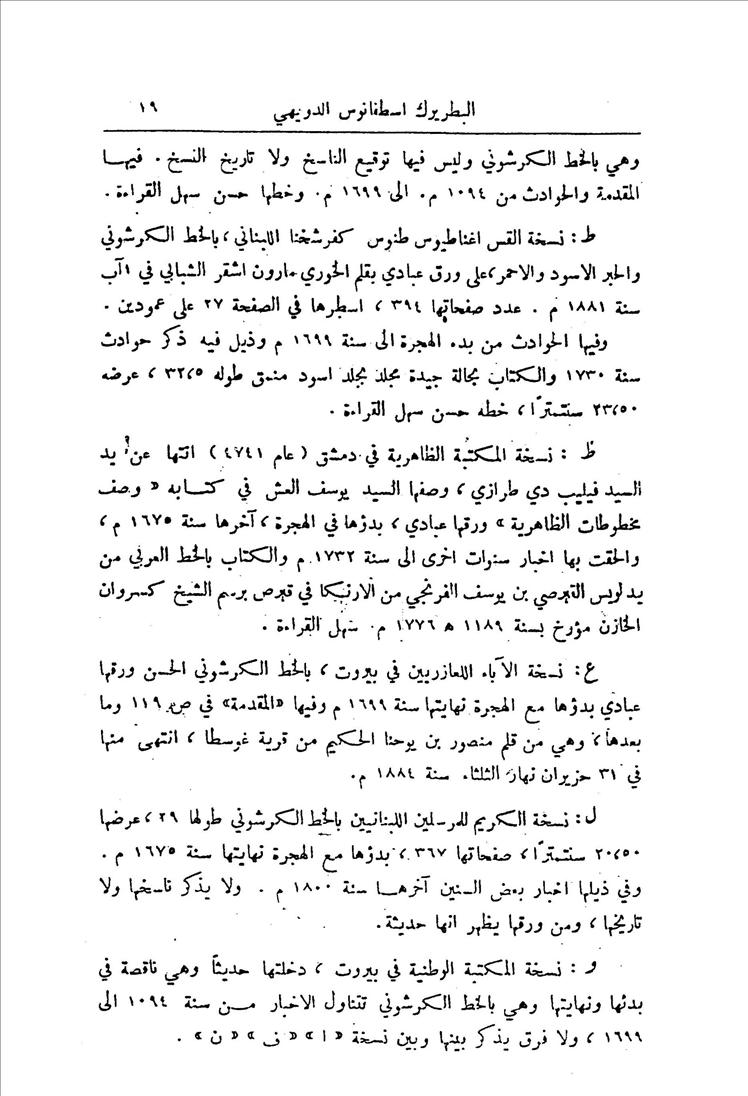 البطريرك اسطفانوس الدويهي ١٩
وهي بالخط الكرشوني وليس فيها توقيع الناسخ ولا تاريخ النسخ . فيهـا
المقدمة والحوادث من ١٠٩٤ م. الى ١٦٩٩ م. وخطها حسن سهل القراءة .
ط : نسخة القس اغناطيوس طنوس كفرشخنا اللبناني ، بالخط الكرشوني
والحبر الاسود والاحمر ، على ورق عبادي بقلم الخوري مارون اشقر الشبابي في ١ آب
سنة ١٨٨١ م . عدد صفحاتها ٣٩٤ ، اسطرها في الصفحة ٢٧ على عمودين .
وفيها الحوادث من بدء الهجرة الى سنة ١٦٩٩ م وذيل فيه ذكر حوادث
سنة ١٧٣٠ والكتاب بحالة جيدة مجلد بجلد اسود منمق طوله ٣٢،٥ ، عرضه
٢٣،٥٠ سنتمترًا ، خطه حسن سهل القراءة .
ظ : نسخة المكتبة الظاهرية في دمشق ( عام ٤٧٤١ ) اتتها عن يد
السيد فيليب دي طرازي ، وصفها السيد يوسف العش في كتـابه « وصف
مخطوطات الظاهرية » ورقها عبادي ، بدؤها في الهجرة ، آخرها سنة ١٦٧٥ م ،
والحقت بها اخبار سنوات اخرى الى سنة ١٧٣٢ م والكتاب بالخط العربي من
يد لويس القبرصي بن يوسف الفرنجي من الارنيكا في قبرص برسم الشيخ كسروان
الخازن مؤرخ بسنة ١١٨٩ ه ١٧٧٦ م. سهل القراءة .
ع : نسخة الآباء اللعازريين في بيروت ، بالخط الكرشوني الحسن ورقها
عبادي بدؤها مع الهجرة نهايتها سنة ١٦٩٩ م وفيها «المقدمة» في ص ١١٩ وما
بعدها ، وهي من قلم منصور بن يوحنا الحكيم من قرية غوسطا ، انتهى منها
في ٣١ حزيران نهار الثلثاء سنة ١٨٨٤ م.
ل : نسخة الكريم للمرسلين اللبنانيين بالخط الكرشوني طولها ٢٩ ، عرضها
٢٠،٥٠ سنتمترًا ، صفحاتها ٣٦٧ ، بدؤها مع الهجرة نهايتها سنة ١٦٧٥ م .
وفي ذيلها اخبار بعض السنين آخرهـا سنة ١٨٠٠ م . ولا يذكر ناسخها ولا
تاريخها ، ومن ورقها يظهر انها حديثة.
و : نسخة المكتبة الوطنية في بيروت ، دخلتها حديثاً وهي ناقصة في
بدئها ونهايتها وهي بالخط الكرشوني تتناول الاخبار مـن سنة ١٠٩٤ الى
١٦٩٩ ، ولا فرق يذكر بينها وبين نسخة « ا » « ف » « ن » .